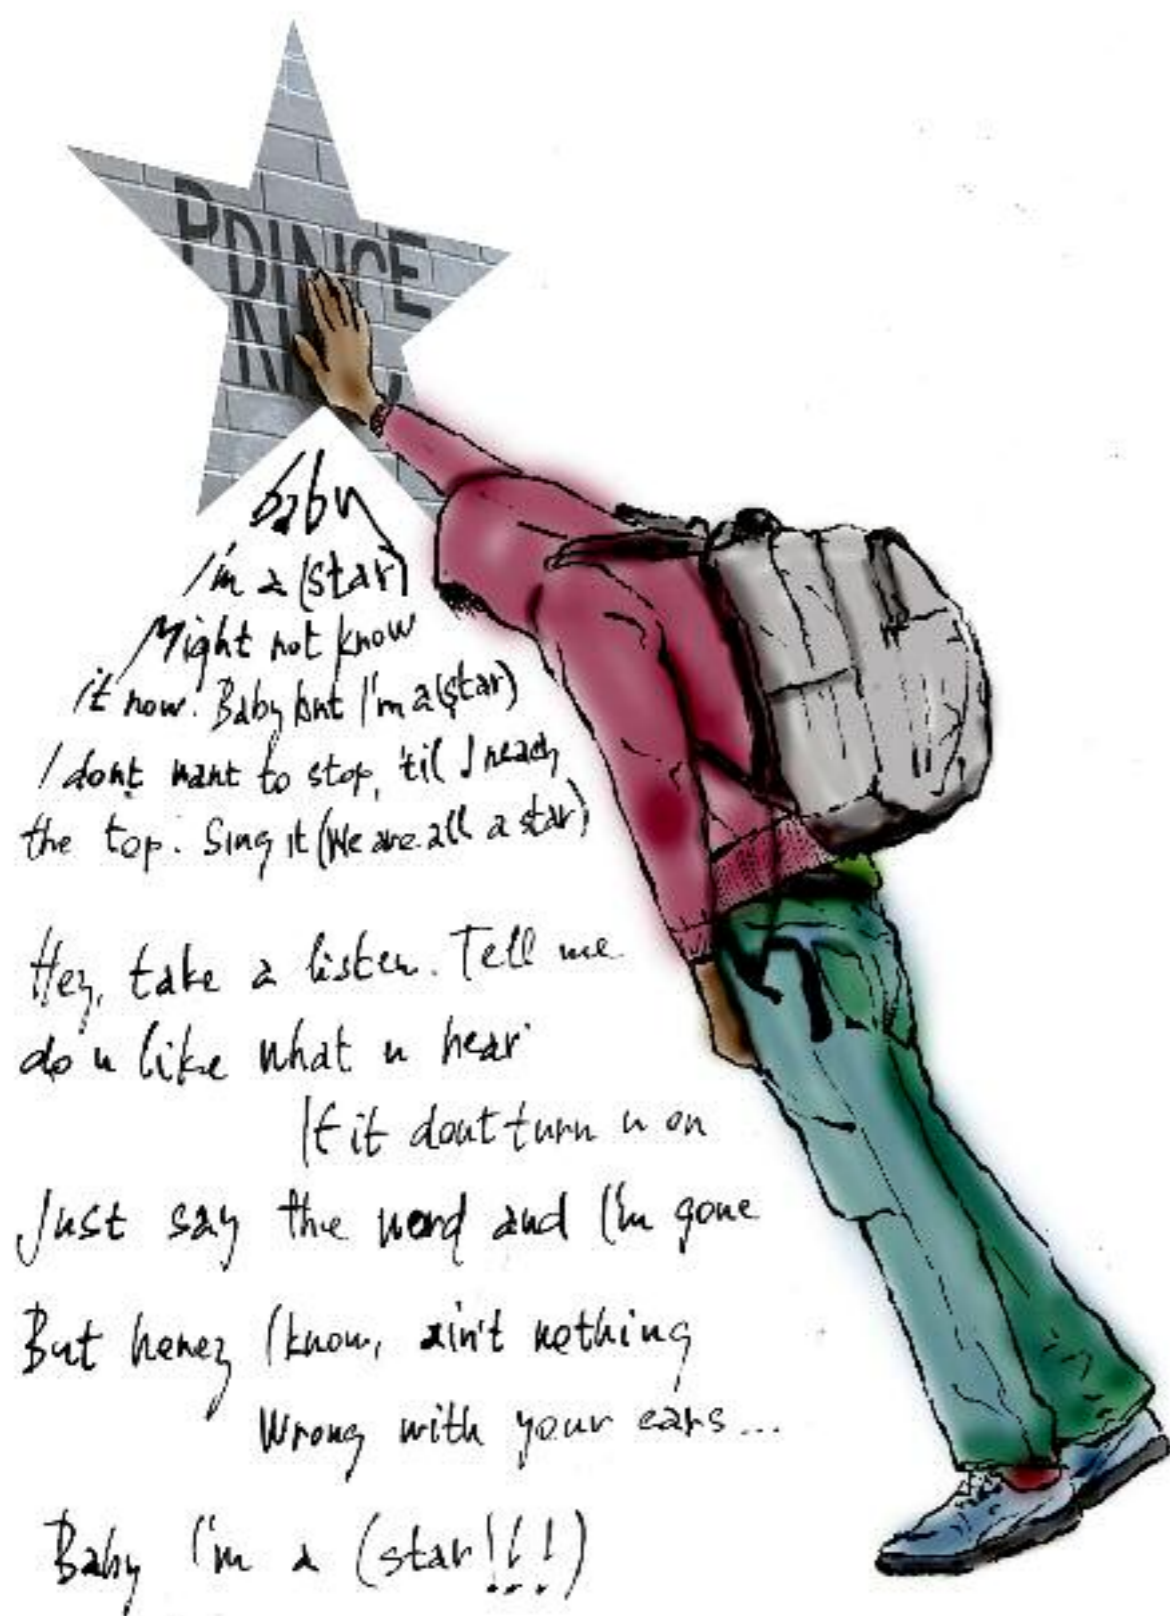 PRINCE
baby
I'm a (star)
Might not know
it now. Baby but I'm a (star)
I dont want to stop, 'til I reach
the top. Sing it (We are all a star)
Hey, take a listen. Tell me
do u like what u hear
If it dont turn u on
Just say the word and I'm gone
But honey I know, ain't nothing
Wrong with your ears...
Baby I'm a (star!!!)